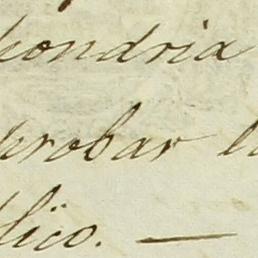 pondria
probar l
lico. —